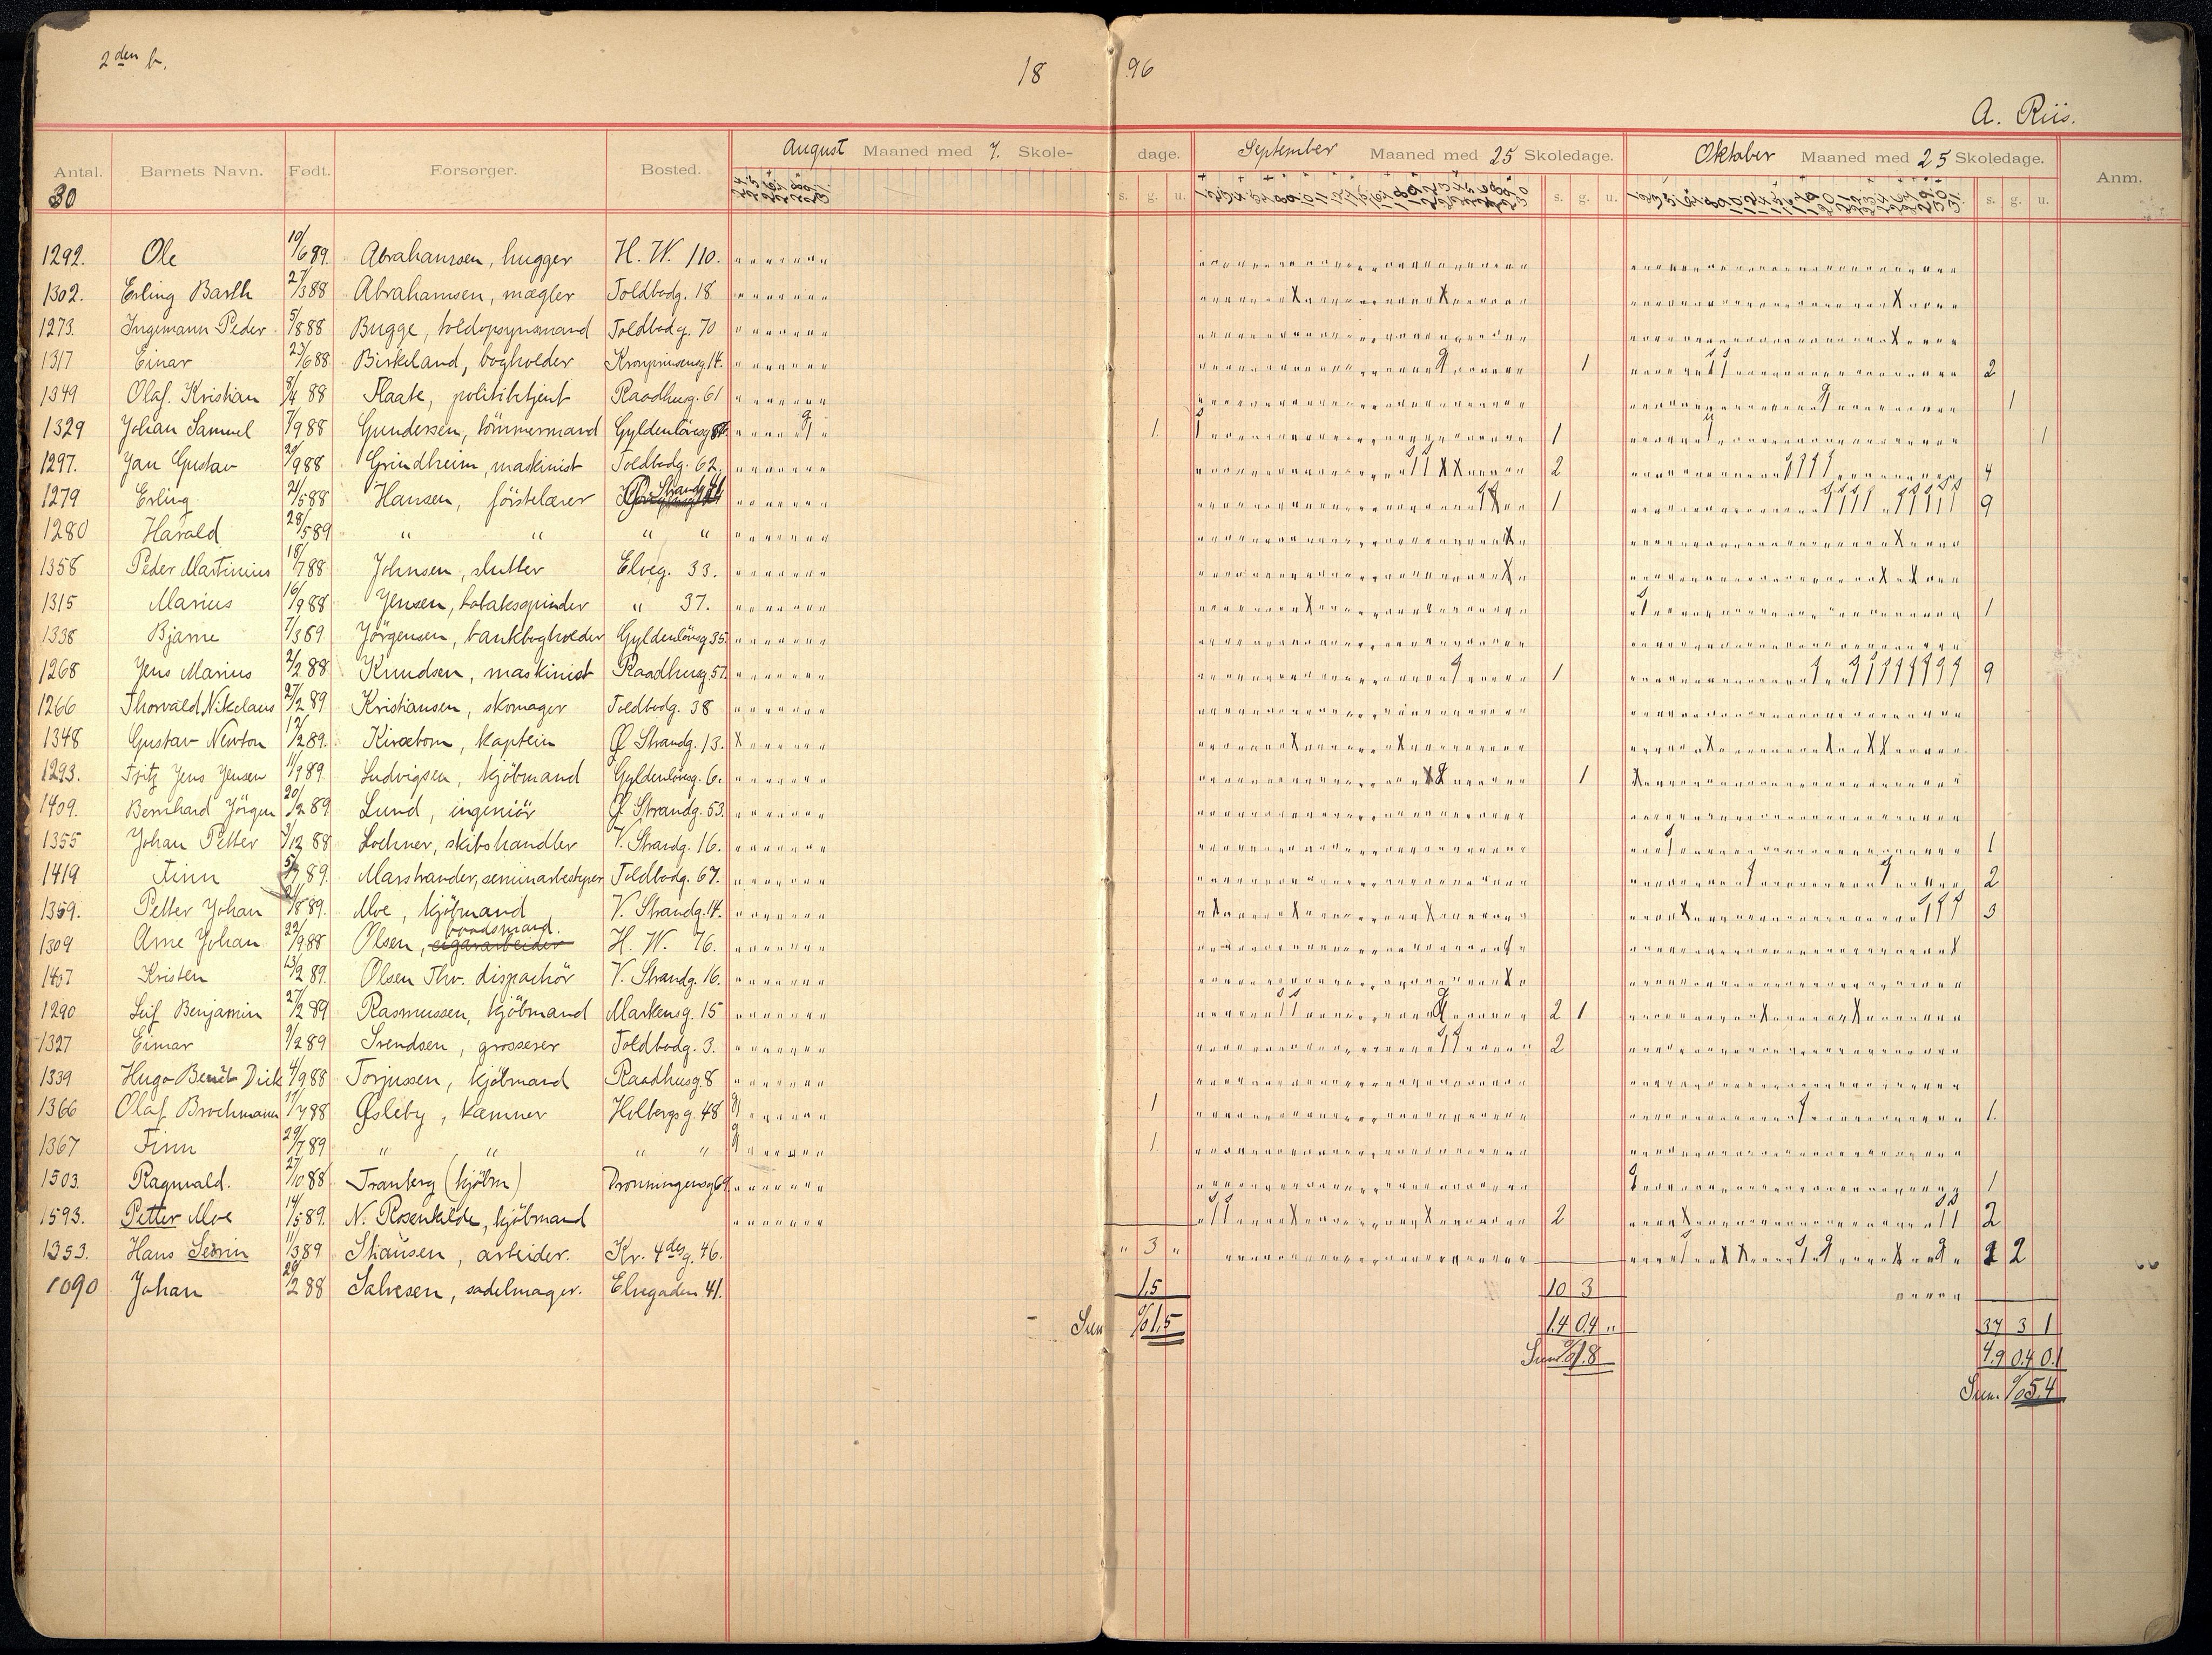 2den b.
18 96
A. Riis.
Antal. Barnets Navn. Født. Forsørger. Bosted. August Maaned med 7. Skole- dage. September Maaned med 25 Skoledage. Oktober Maaned med 25 Skoledage. Anm.
30 s. g. u. s. g. u. s. g. u.
1292. Ole 10/6 89. Abrahamsen, hugger H. W. 110.
1302. Erling Barth 27/3 88 Abrahamsen, mægler Toldbodg. 18
1273. Ingemann Peder 5/8 88 Bugge, toldopsynsmand Toldbodg. 70
1317 Einar 23/6 88 Birkeland, bogholder Kronprinsensg. 14. 1 2
1349 Olaf. Kristian 8/4 88 Flaate, politibetjent Raadhusg. 61 1
1329 Johan Samuel 7/9 88 Gundersen, tömmermand Gyldenlövesg 1 1 1
1297. Jan Gustav 29/9 88 Grindheim, maskinist Toldbodg. 62. 2 4
1279 Erling 21/5 88 Hansen, förstelærer 1 9
1280 Harald 28/5 89 " " " "
1358 Peder Martinius 18/7 88 Johnsen, slutter Elveg. 33.
1315 Marius 16/9 88 Jensen, tobakspinder " 37. 1
1338 Bjarne 7/3 89 Jörgensen, bankbogholder Gyldenlövsg 35.
1268 Jens Marius 2/2 88 Knudsen, maskinist Raadhusg 57. 1 9
1266 Thorvald Nikolaus 27/2 89 Kristiansen, skomager Toldbodg. 38
1348 Gustav Newton 12/2 89. Kirsebom, kaptein Ø Strandg. 13.
1293. Fritz Jens Jensen 11/9 89 Ludvigsen, kjöbmand Gyldenlövesg. 6. 1
1409. Bernhard Jörgen 20/2 89 Lund, ingeniör Ø Strandg. 53.
1355 Johan Petter 3/12 88 Lochner, skibshandler V. Strandg. 16. 1
1419 Finn 89. Marstrander, seminarbestyrer Toldbodg. 67. 2
1359. Petter Johan 21/8 89. Moe, kjöbmand V. Strandg. 14. 3
1309 Arne Johan 22/9 88 Olsen, cigararbeider baadsmand. H. W. 76.
1407 Kristen 13/2 89. Olsen Thv. dispachör V. Strandg. 16.
1290 Leif Benjamin 27/2 89 Rasmussen, kjöbmand Markensg. 15 2 1
1327 Eimar 9/2 89 Svendsen, grosserer Toldbodg. 3. 2
1339 Hugo Dick 4/9 88 Torjussen, kjöbmand Raadhusg. 8
1366 Olaf Brochmann 11/7 88 Øsleby, kæmner Holbergsg. 48 1 1.
1367 Finn 29/7 89 " " " " 1
1503. Ragnvald. 27/10 88 Tranberg (kjöbm) Dronningensg 69. 1
1593. Petter Moe 14/5 89. N. Rosenkilde, kjöbmand 2 2
1353. Hans Severin 11/3 89 Stiansen, arbeider. Kr. 4des g. 46. " 3 " 2
1090 Johan 29/2 88 Salvesen, sadelmager. Elvegaden 41. 1.5 10 3
Sum % 1.5 1.4 0.4 " 37 3 1
Sum % 1.8 4.9 0.4 0.1
Sum. % 5.4